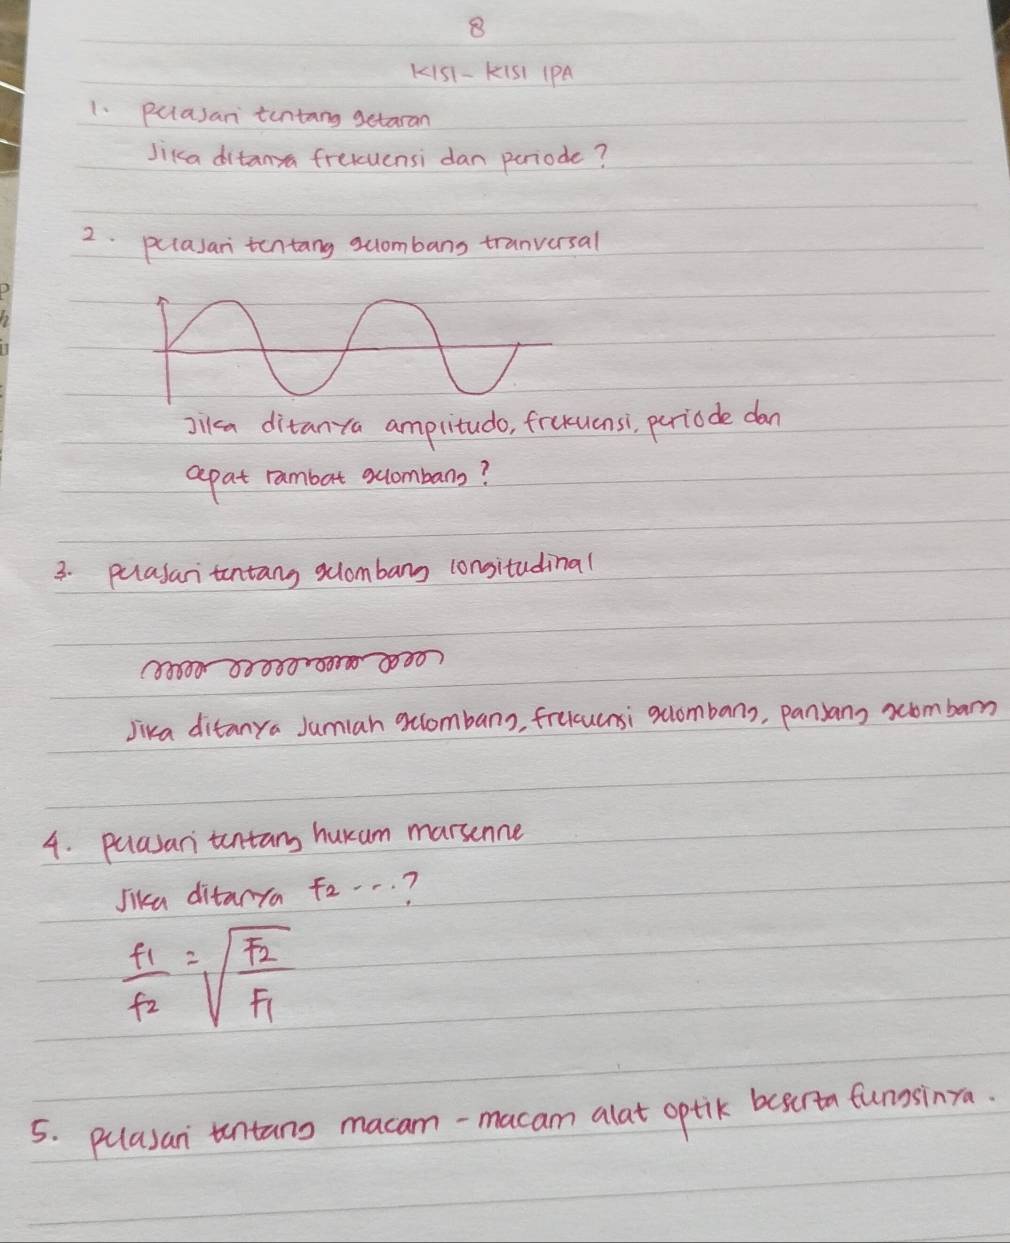 8
KISI-KISI IPA
1. pelajari tentang getaran
Jika ditanya frekuensi dan periode?
2. pelajari tentang gelombang tranversal
Jika ditanya amplitudo, frekuensi, periode dan
cepat rambat gelombang?
3. pelajari tentang gelombang longitudinal
Jika ditanya Jumlah gelombang, frekuensi gelombang, panjang gelombang
4. pelajari tentang hukum marsenne
Jika ditanya F2 ....?
f1/f2 = √F2/F1
5. pelajari tentang macam-macam alat optik beserta fungsinya.